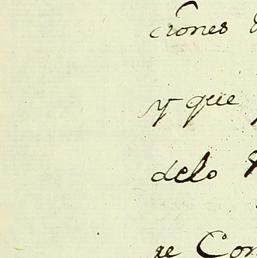 ciones
y que
delo
ge Con